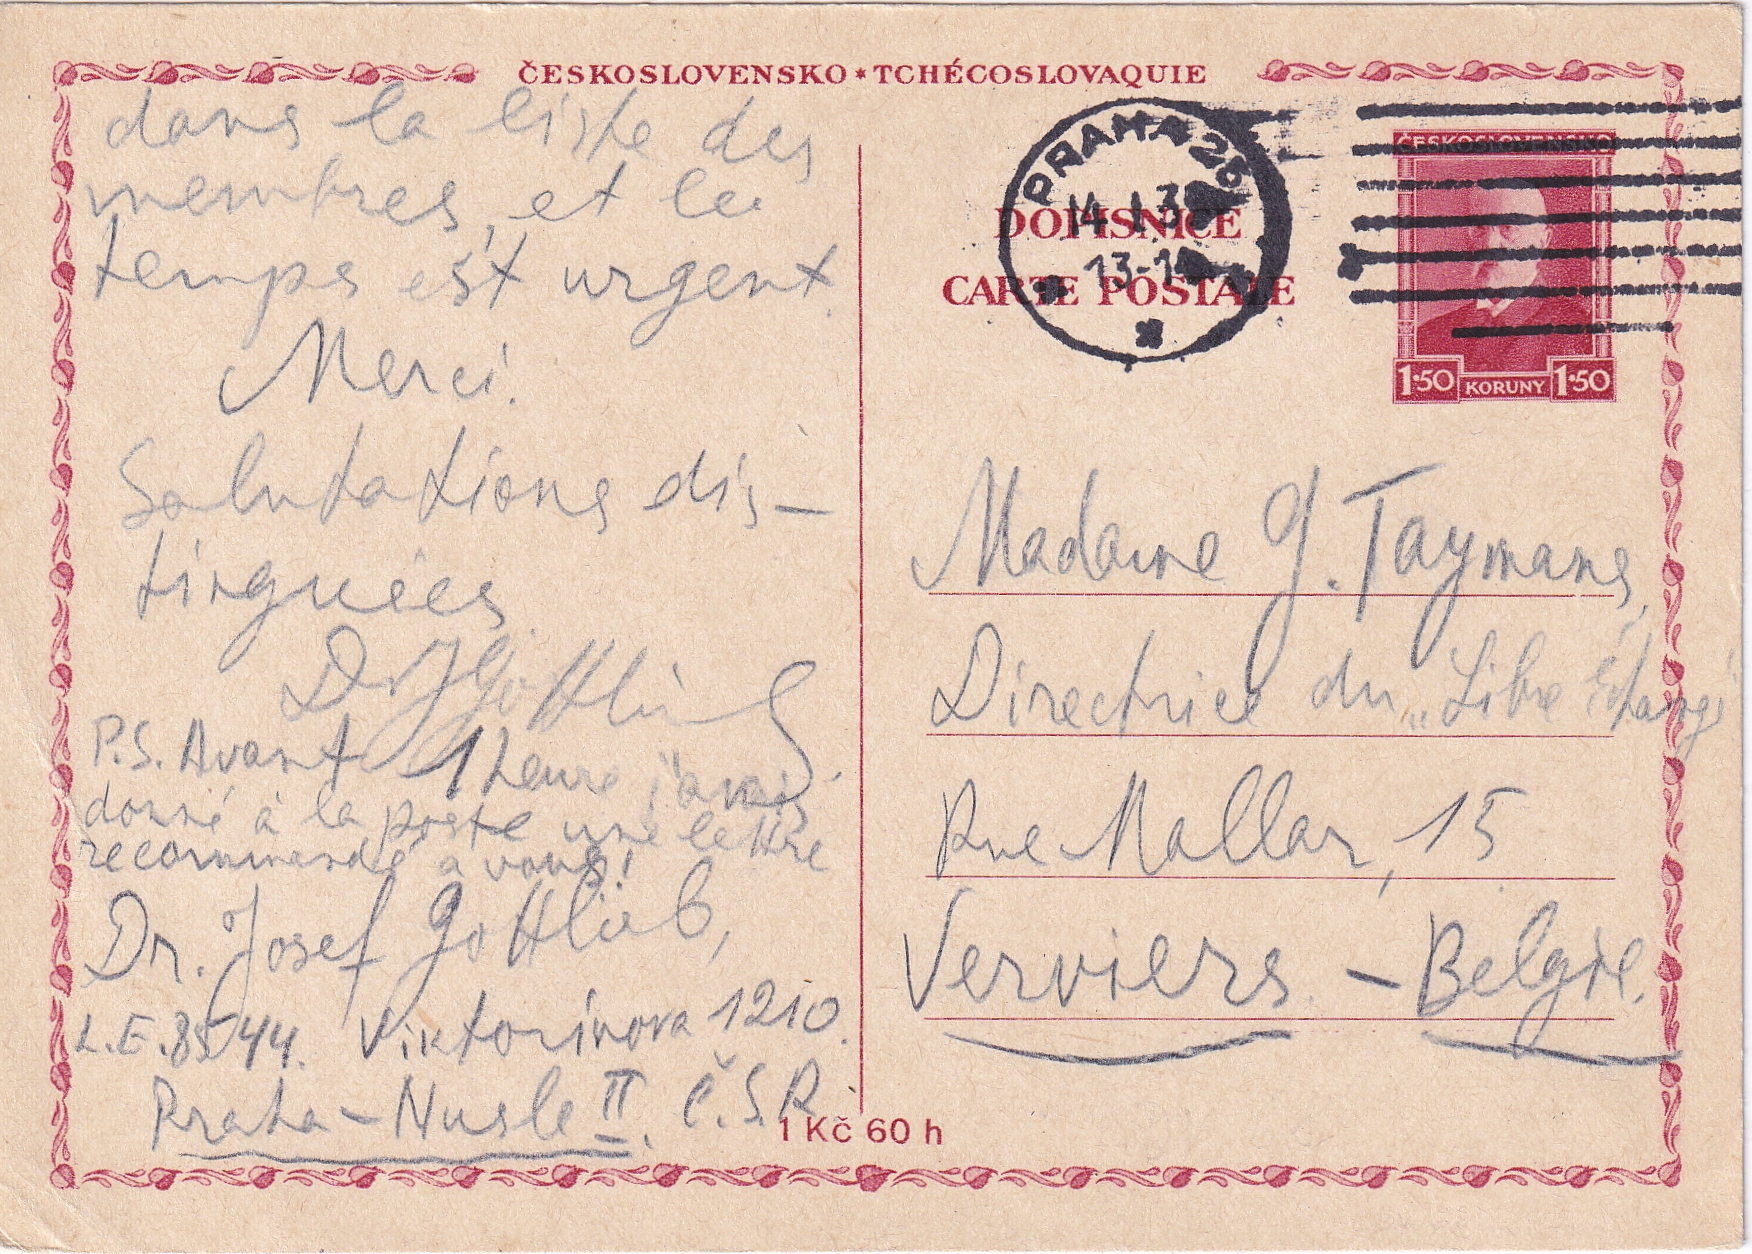 ČESKOSLOVENSKO * TCHÉCOSLOVAQUIE
dans la liste des
membres, et le
temps est urgent.
Merci.
Salutations dis-
tinguées
Dr J Gottlieb
P.S. Avant 1 heure j'avais
donné à la poste une lettre
recommendé a vous!
Dr. Josef Gottlieb,
L.E. 8544. Viktorinova 1210.
Praha-Nusle II. Č.S.R.
1 Kč 60 h
PRAHA 25
14. I. 3
13-1
DOPISNICE
CARTE POSTALE
ČESKOSLOVENSKO
1·50 KORUNY 1·50
Madame G. Taymans,
Directrice du „Libre Échange
Rue Mallar, 15
Verviers - Belgie.